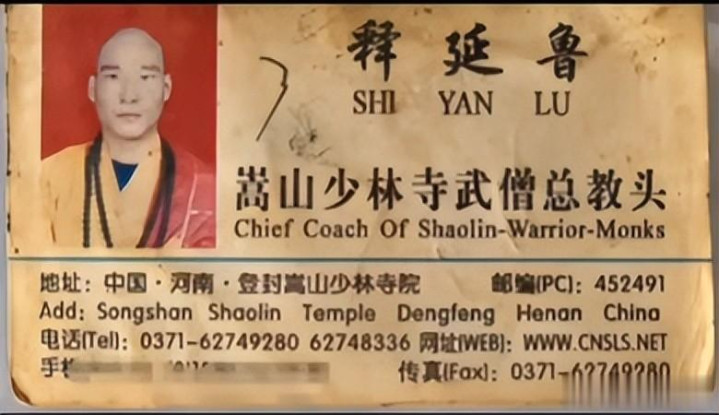 释延鲁
SHI YAN LU
嵩山少林寺武僧总教头
Chief Coach Of Shaolin-Warrior-Monks
地址：中国·河南·登封嵩山少林寺院 邮编(PC)：452491
Add：Songshan Shaolin Temple Dengfeng Henan China
电话(Tel)：0371-62749280 62748336 网址(WEB)：WWW.CNSLS.NET
手机 传真(Fax)：0371-62749280